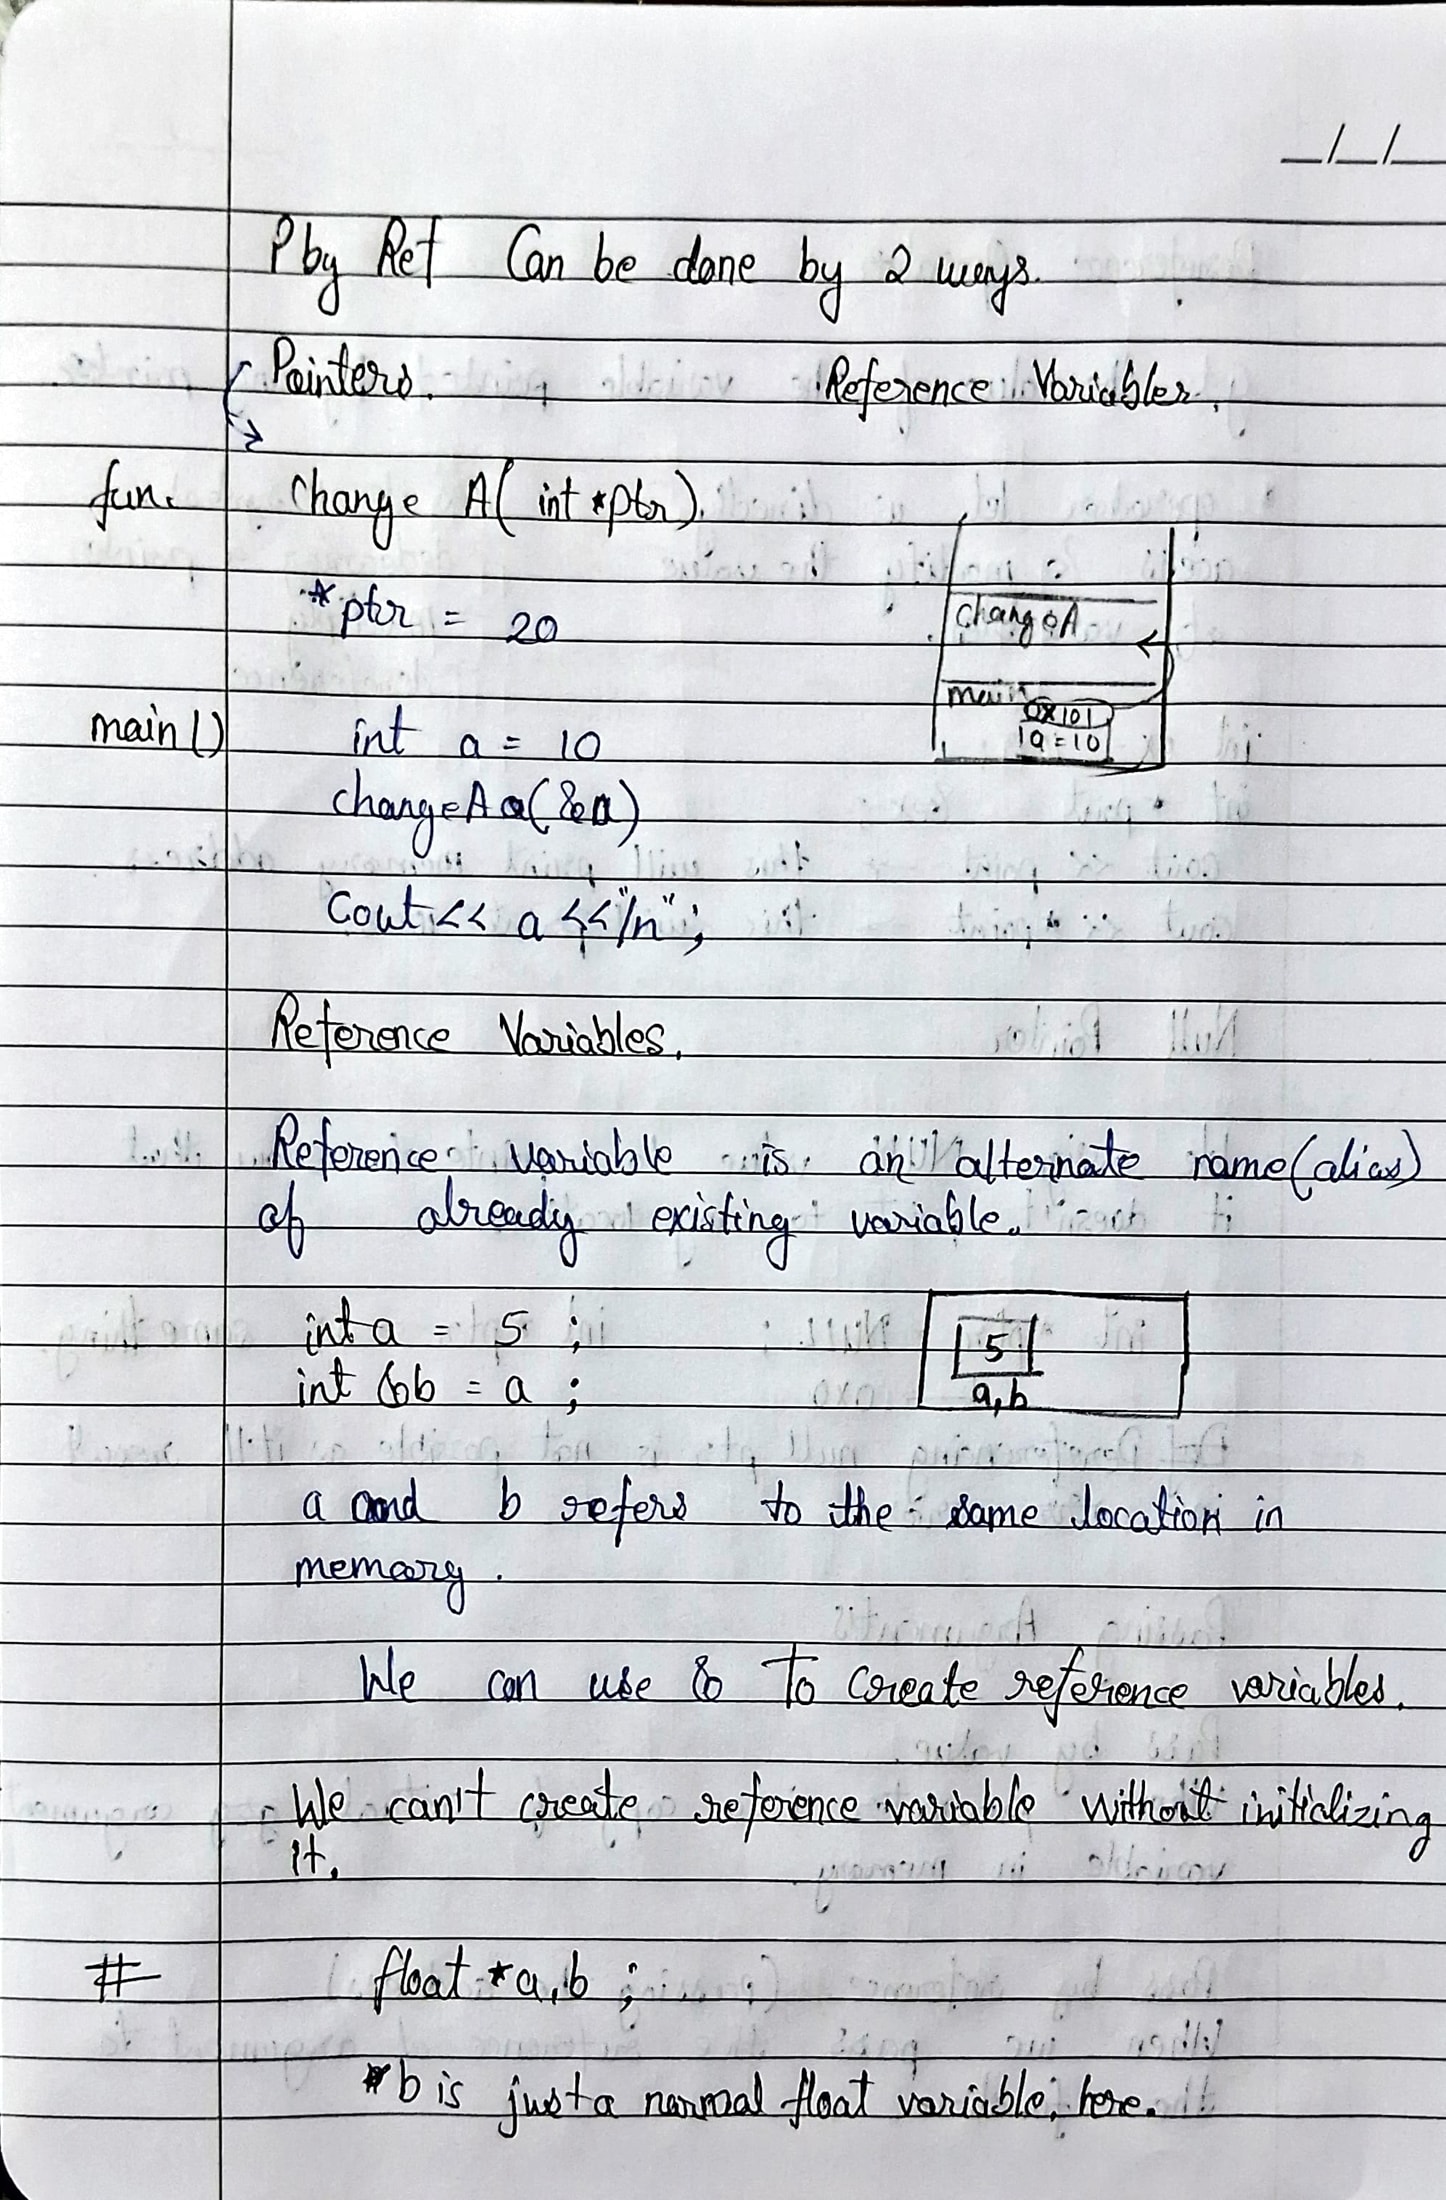 _/_/_
P by Ref Can be done by 2 ways.
Pointers. Reference Variables.
func change A( int *ptr).
*ptr = 20
changeA
main
0x101
a=10
main() int a = 10
changeA a(&a)
Cout<< a <<"/n";
Reference Variables.
Reference variable is an alternate name(alias)
of already existing variable.
int a = 5 ;
int &b = a ;
5
a,b
a and b refers to the same location in
memory.
We can use & To create reference variables.
We can't create reference variable without initializing
it.
# float *a,b ;
*b is just a normal float variable, here.